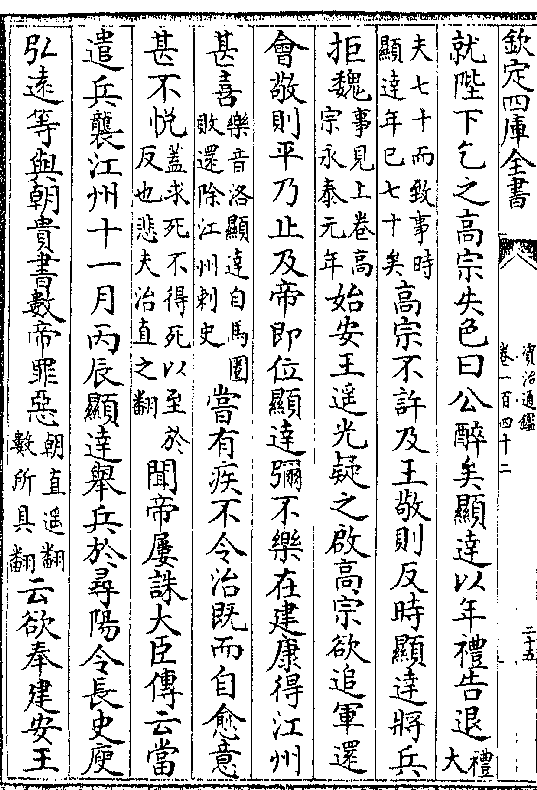 欽定四庫全書
資治通鑑
卷一百四十二
二十五
就陛下乞之高宗失色曰公醉矣顯達以年禮告退禮大
夫七十而致事時顯達年已七十矣高宗不許及王敬則反時顯達將兵
拒魏事見上卷高宗永泰元年始安王遥光疑之啟高宗欲追軍還
會敬則平乃止及帝即位顯達彌不樂在建康得江州
甚喜樂音洛顯達自馬圏敗還除江州刺史嘗有疾不令治既而自愈意
甚不悦蓋求死不得死以至於反也悲夫治直之翻聞帝屢誅大臣傳云當
遣兵襲江州十一月丙辰顯達舉兵於尋陽令長史庾
弘遠等與朝貴書數帝罪惡朝直遥翻數所具翻云欲奉建安王